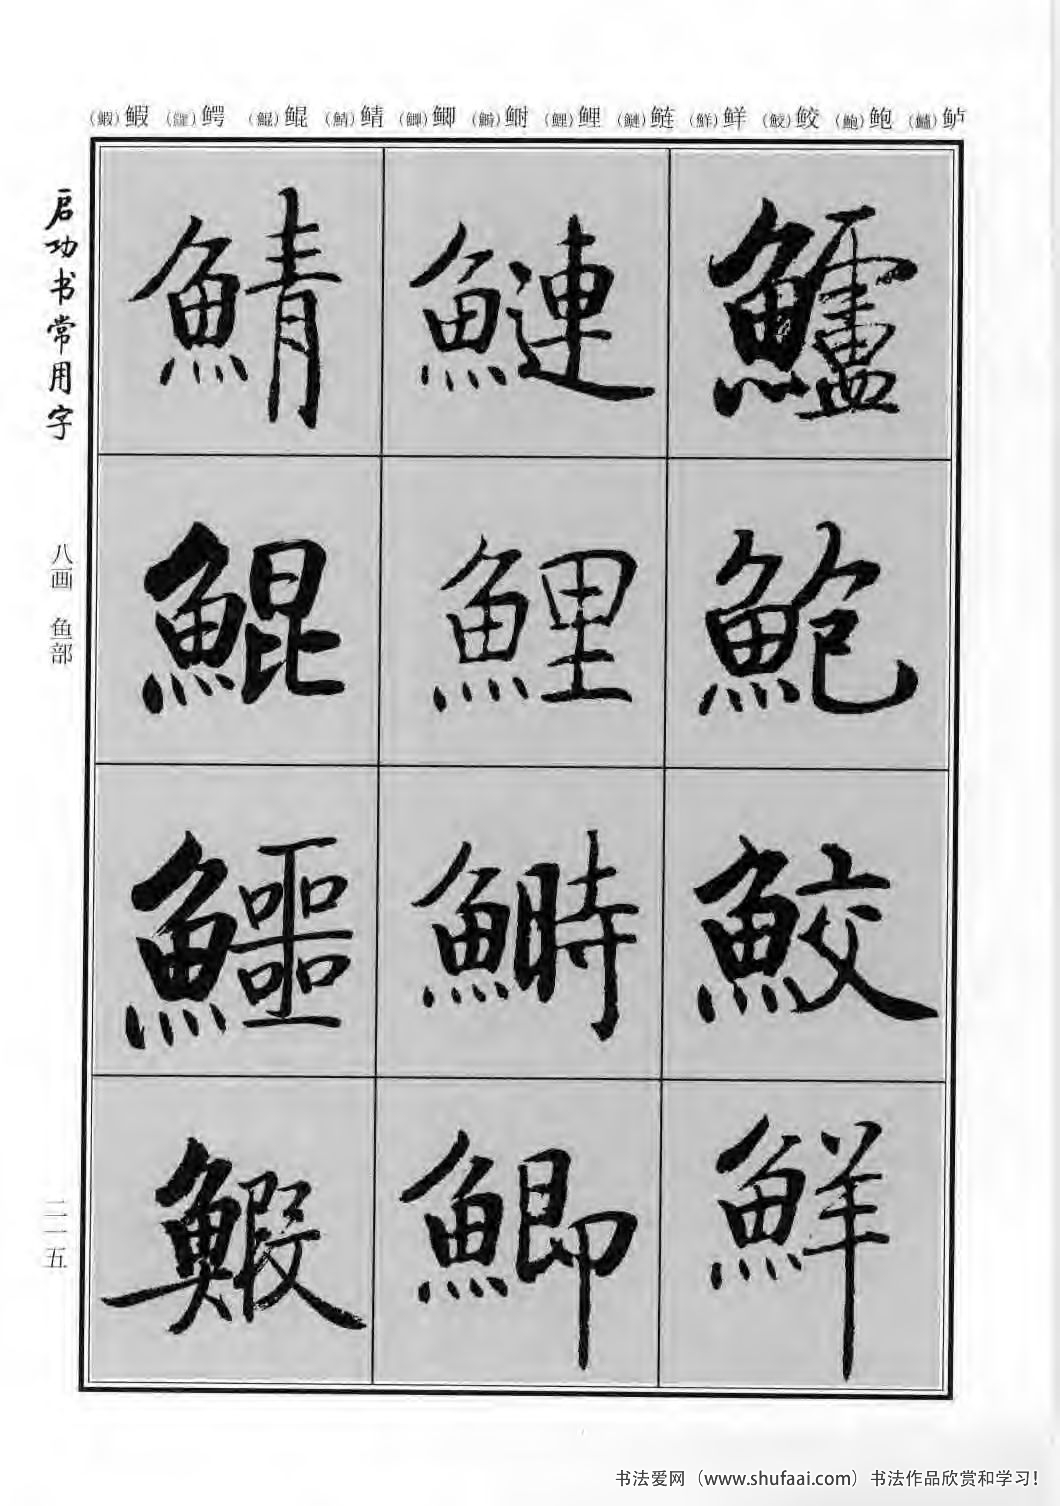 鲈(鱸) 鲍(鮑) 鲛(鮫) 鲜(鮮) 鲢(鰱) 鲤(鯉) 鲥(鰣) 鲫(鯽) 鲭(鯖) 鲲(鯤) 鳄(鱷) 鰕(鰕)
鱸鮑鮫鮮
鰱鯉鰣鯽
鯖鯤鱷鰕
启功书常用字
八画 鱼部
二一五
书法爱网（www.shufaai.com）书法作品欣赏和学习！